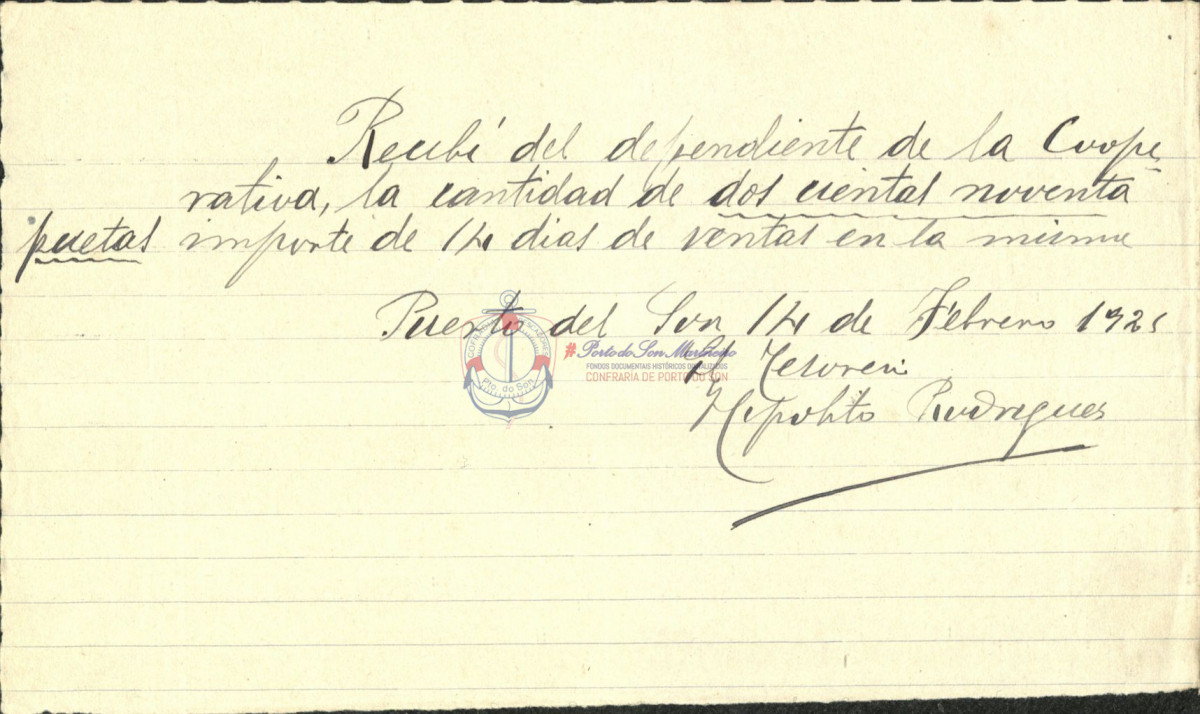 Recibí del dependiente de la Coope
rativa, la cantidad de dos cientas noventa
pesetas importe de 14 dias de ventas en la misma
Puerto del Son 14 de Febrero 1925
El Tesorero
Hipolito Rodrigues
COFRADÍA PESCADORES
Pto. do Son
#Porto do Son Mariñeiro
FONDOS DOCUMENTAIS HISTÓRICOS DIXITALIZADOS
CONFRARÍA DE PORTO DO SON